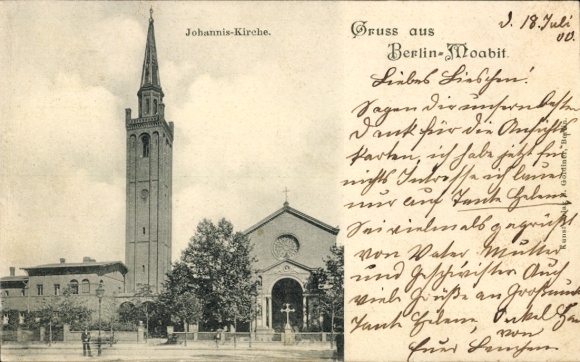 Johannis-Kirche.
Gruss aus
Berlin-Moabit.
d. 18. Juli
00.
Liebes Lieschen!
Sagen dir unsern besten
Dank für die Ansichts
karten, ich habe jetzt für
nichts Intresse ich laure
nur auf Tante Helene
Sei vielmals gegrüßt
von Vater, Mutter
und Geschwister Auch
viele Grüße an Großmutt
Tante Helene Onkel
von
Eurer